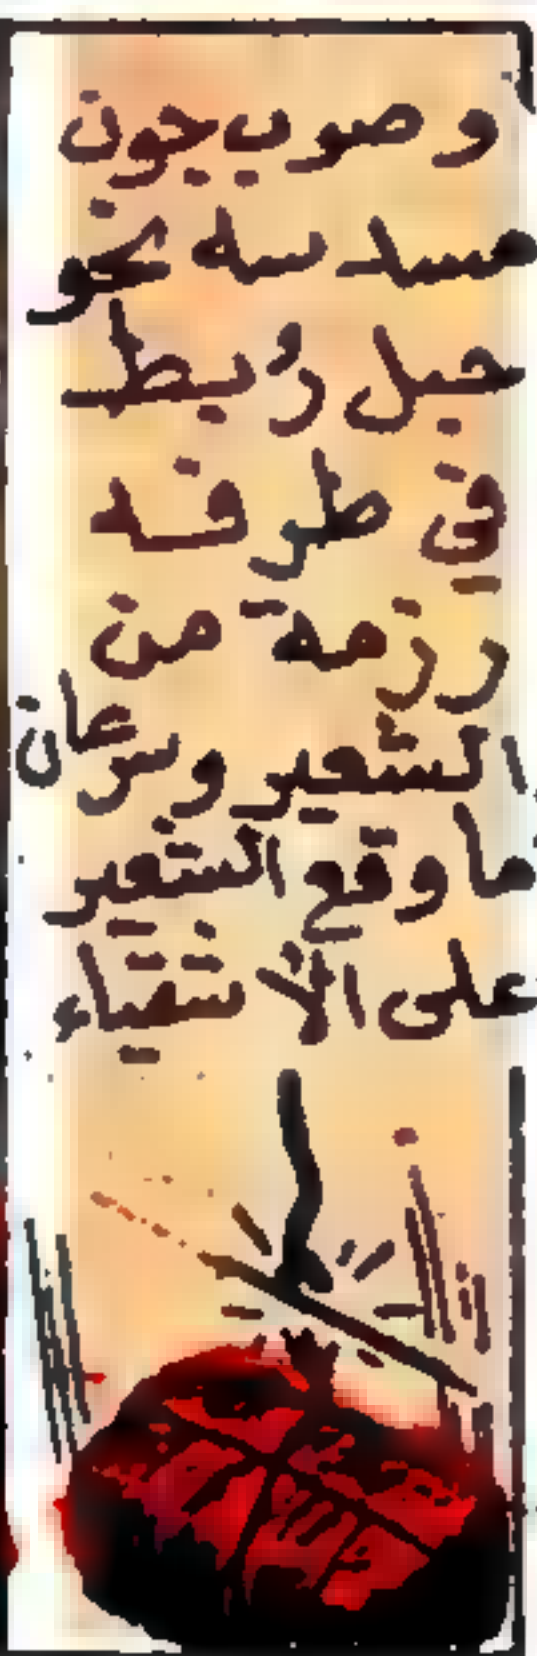 وصوب جون
مسدسه نحو
حبل رُبط
في طرفه
رزمة من
الشعير وسرعان
ما وقع الشعير
على الأشقياء